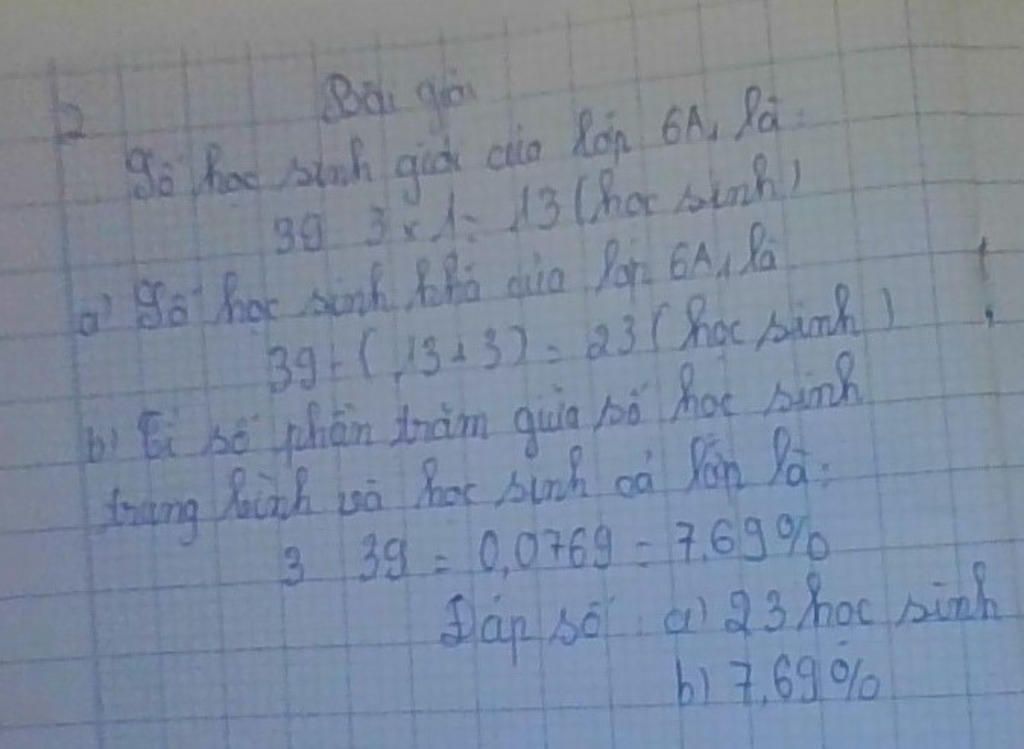 2
Bài giải
Số học sinh giỏi của lớp 6A1 là:
39 : 3 x 1 = 13 (học sinh)
a) Số học sinh khá của lớp 6A1 là
39 - (13 + 3) = 23 (học sinh)
b) Tỉ số phần trăm giữa số học sinh
trung bình và học sinh cả lớp là:
3 : 39 = 0,0769 = 7,69%
Đáp số: a) 23 học sinh
b) 7,69%